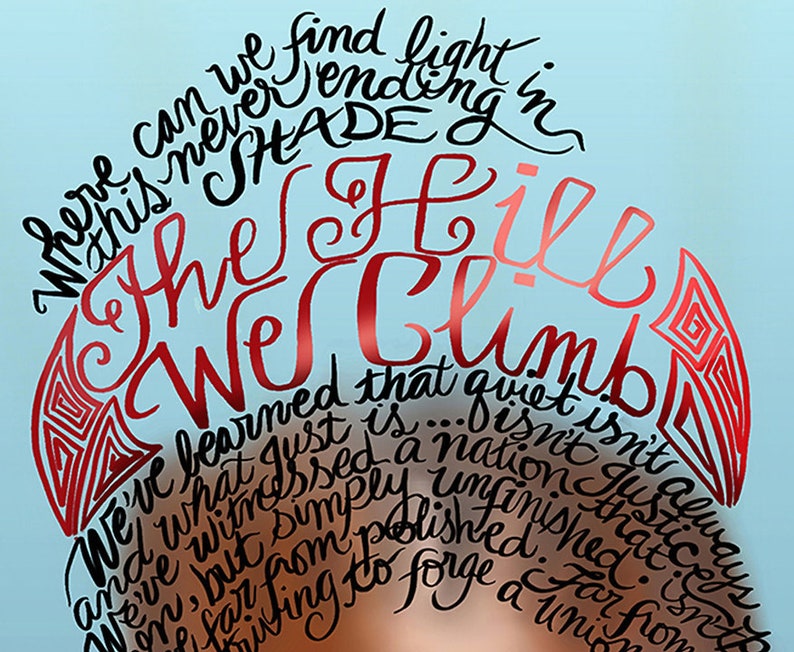 Where can we find light in
this never ending
SHADE
The Hill
We Climb
We've learned that quiet isn't always
and what Just is... isn't Justice
We've witnessed a nation that isn't
but simply unfinished.
far from polished. Far from
to forge a union